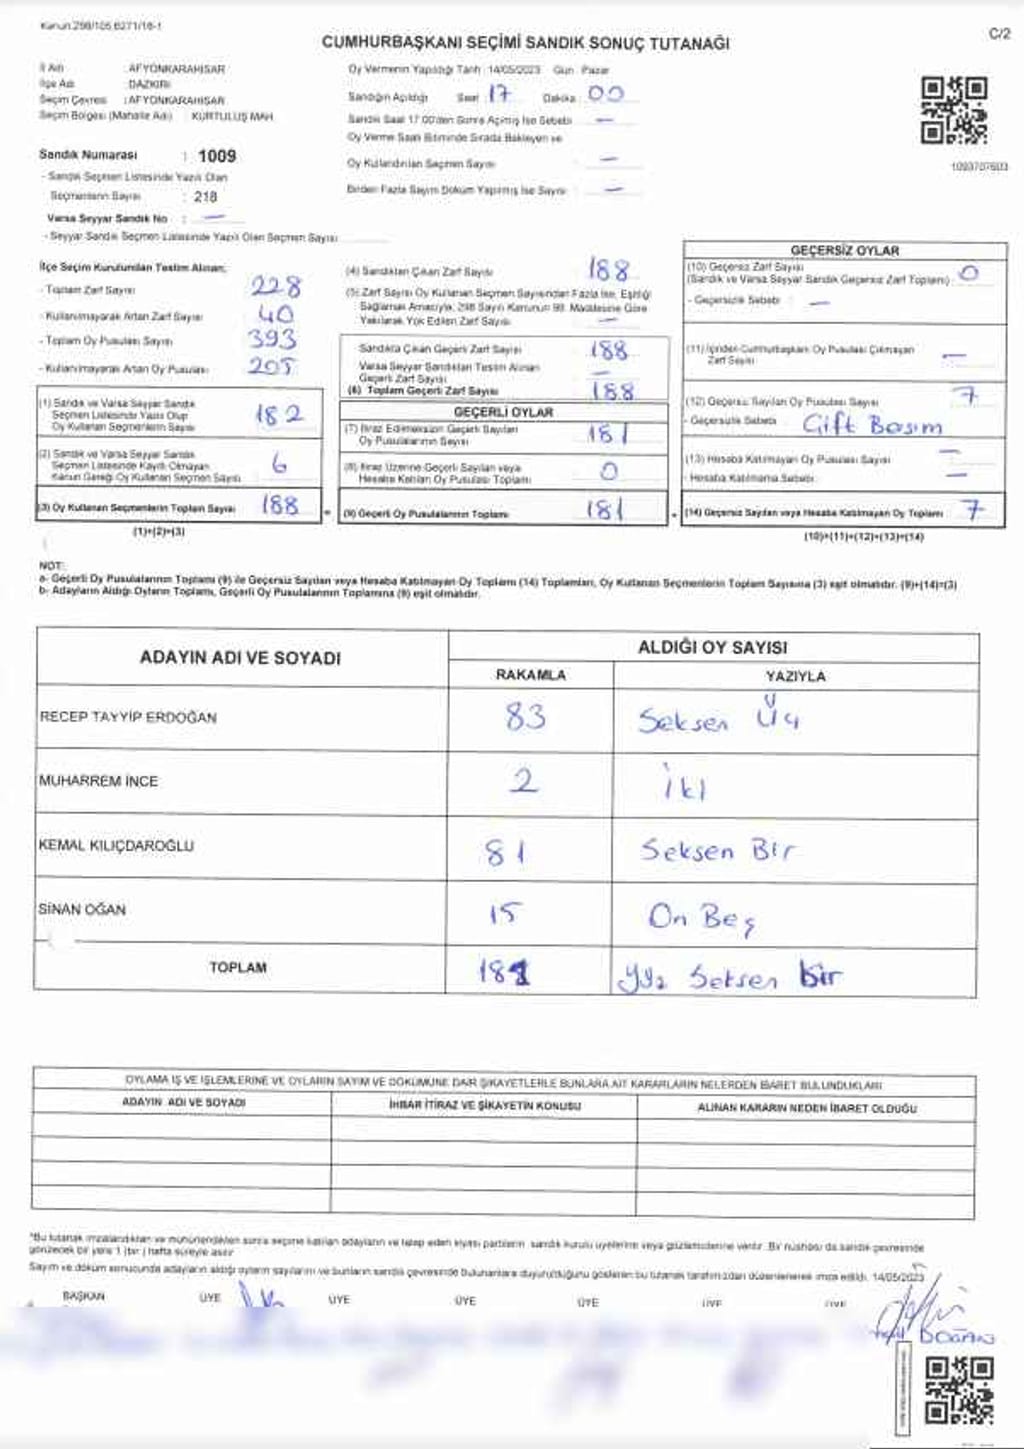 Kanun:298/105,6271/18-1
C/2
CUMHURBAŞKANI SEÇİMİ SANDIK SONUÇ TUTANAĞI
İl Adı : AFYONKARAHİSAR
İlçe Adı : DAZKIRI
Seçim Çevresi : AFYONKARAHİSAR
Seçim Bölgesi (Mahalle Adı) : KURTULUŞ MAH.
Oy Vermenin Yapıldığı Tarih : 14/05/2023 Gün : Pazar
Sandığın Açıldığı Saat : 17 Dakika : 00
Sandık Saat 17:00'den Sonra Açılmış İse Sebebi : —
Oy Verme Saati Bitiminde Sırada Bekleyen ve
Oy Kullandırılan Seçmen Sayısı : —
Birden Fazla Sayım Döküm Yapılmış İse Sayısı : —
1093707603
Sandık Numarası : 1009
- Sandık Seçmen Listesinde Yazılı Olan
Seçmenlerin Sayısı : 218
Varsa Seyyar Sandık No : —
- Seyyar Sandık Seçmen Listesinde Yazılı Olan Seçmen Sayısı
İlçe Seçim Kurulundan Teslim Alınan;
- Toplam Zarf Sayısı : 228
- Kullanılmayarak Artan Zarf Sayısı : 40
- Toplam Oy Pusulası Sayısı : 393
- Kullanılmayarak Artan Oy Pusulası : 205
(1) Sandık ve Varsa Seyyar Sandık
Seçmen Listesinde Yazılı Olup
Oy Kullanan Seçmenlerin Sayısı 182
(2) Sandık ve Varsa Seyyar Sandık
Seçmen Listesinde Kayıtlı Olmayan
Kanun Gereği Oy Kullanan Seçmen Sayısı 6
(3) Oy Kullanan Seçmenlerin Toplam Sayısı 188
(1)+(2)=(3)
(4) Sandıktan Çıkan Zarf Sayısı 188
(5) Zarf Sayısı Oy Kullanan Seçmen Sayısından Fazla İse, Eşitliği
Sağlamak Amacıyla; 298 Sayılı Kanunun 98. Maddesine Göre
Yakılarak Yok Edilen Zarf Sayısı —
Sandıkta Çıkan Geçerli Zarf Sayısı 188
Varsa Seyyar Sandıktan Teslim Alınan
Geçerli Zarf Sayısı —
(6) Toplam Geçerli Zarf Sayısı 188
GEÇERLİ OYLAR
(7) İtiraz Edilmeksizin Geçerli Sayılan
Oy Pusulalarının Sayısı 181
(8) İtiraz Üzerine Geçerli Sayılan veya
Hesaba Katılan Oy Pusulası Toplamı 0
= (9) Geçerli Oy Pusulalarının Toplamı 181
GEÇERSİZ OYLAR
(10) Geçersiz Zarf Sayısı
(Sandık ve Varsa Seyyar Sandık Geçersiz Zarf Toplamı) 0
- Geçersizlik Sebebi : —
(11) İçinden Cumhurbaşkanı Oy Pusulası Çıkmayan
Zarf Sayısı —
(12) Geçersiz Sayılan Oy Pusulası Sayısı 7
- Geçersizlik Sebebi : Çift Basım
(13) Hesaba Katılmayan Oy Pusulası Sayısı —
- Hesaba Katılmama Sebebi : —
+ (14) Geçersiz Sayılan veya Hesaba Katılmayan Oy Toplamı 7
(10)+(11)+(12)+(13)=(14)
NOT:
a- Geçerli Oy Pusulalarının Toplamı (9) ile Geçersiz Sayılan veya Hesaba Katılmayan Oy Toplamı (14) Toplamları, Oy Kullanan Seçmenlerin Toplam Sayısına (3) eşit olmalıdır. (9)+(14)=(3)
b- Adayların Aldığı Oyların Toplamı, Geçerli Oy Pusulalarının Toplamına (9) eşit olmalıdır.
ADAYIN ADI VE SOYADI ALDIĞI OY SAYISI
RAKAMLA YAZIYLA
RECEP TAYYİP ERDOĞAN 83 Seksen Üç
MUHARREM İNCE 2 İki
KEMAL KILIÇDAROĞLU 81 Seksen Bir
SİNAN OĞAN 15 On Beş
TOPLAM 181 Yüz Seksen bir
OYLAMA İŞ VE İŞLEMLERİNE VE OYLARIN SAYIM VE DÖKÜMÜNE DAİR ŞİKAYETLERLE BUNLARA AİT KARARLARIN NELERDEN İBARET BULUNDUKLARI
ADAYIN ADI VE SOYADI İHBAR İTİRAZ VE ŞİKAYETİN KONUSU ALINAN KARARIN NEDEN İBARET OLDUĞU
*Bu tutanak imzalandıktan ve mühürlendikten sonra seçime katılan adayların ve talep eden siyasi partilerin sandık kurulu üyelerine veya gözlemcilerine verilir. Bir nüshası da sandık çevresinde
görülecek bir yere 1 (bir) hafta süreyle asılır.
Sayım ve döküm sonucunda adayların aldığı oyların sayılarını ve bunların sandık çevresinde bulunanlara duyurulduğunu gösteren bu tutanak tarafımızdan düzenlenerek imza edildi. 14/05/2023
BAŞKAN ÜYE ÜYE ÜYE ÜYE ÜYE ÜYE
DOĞAN